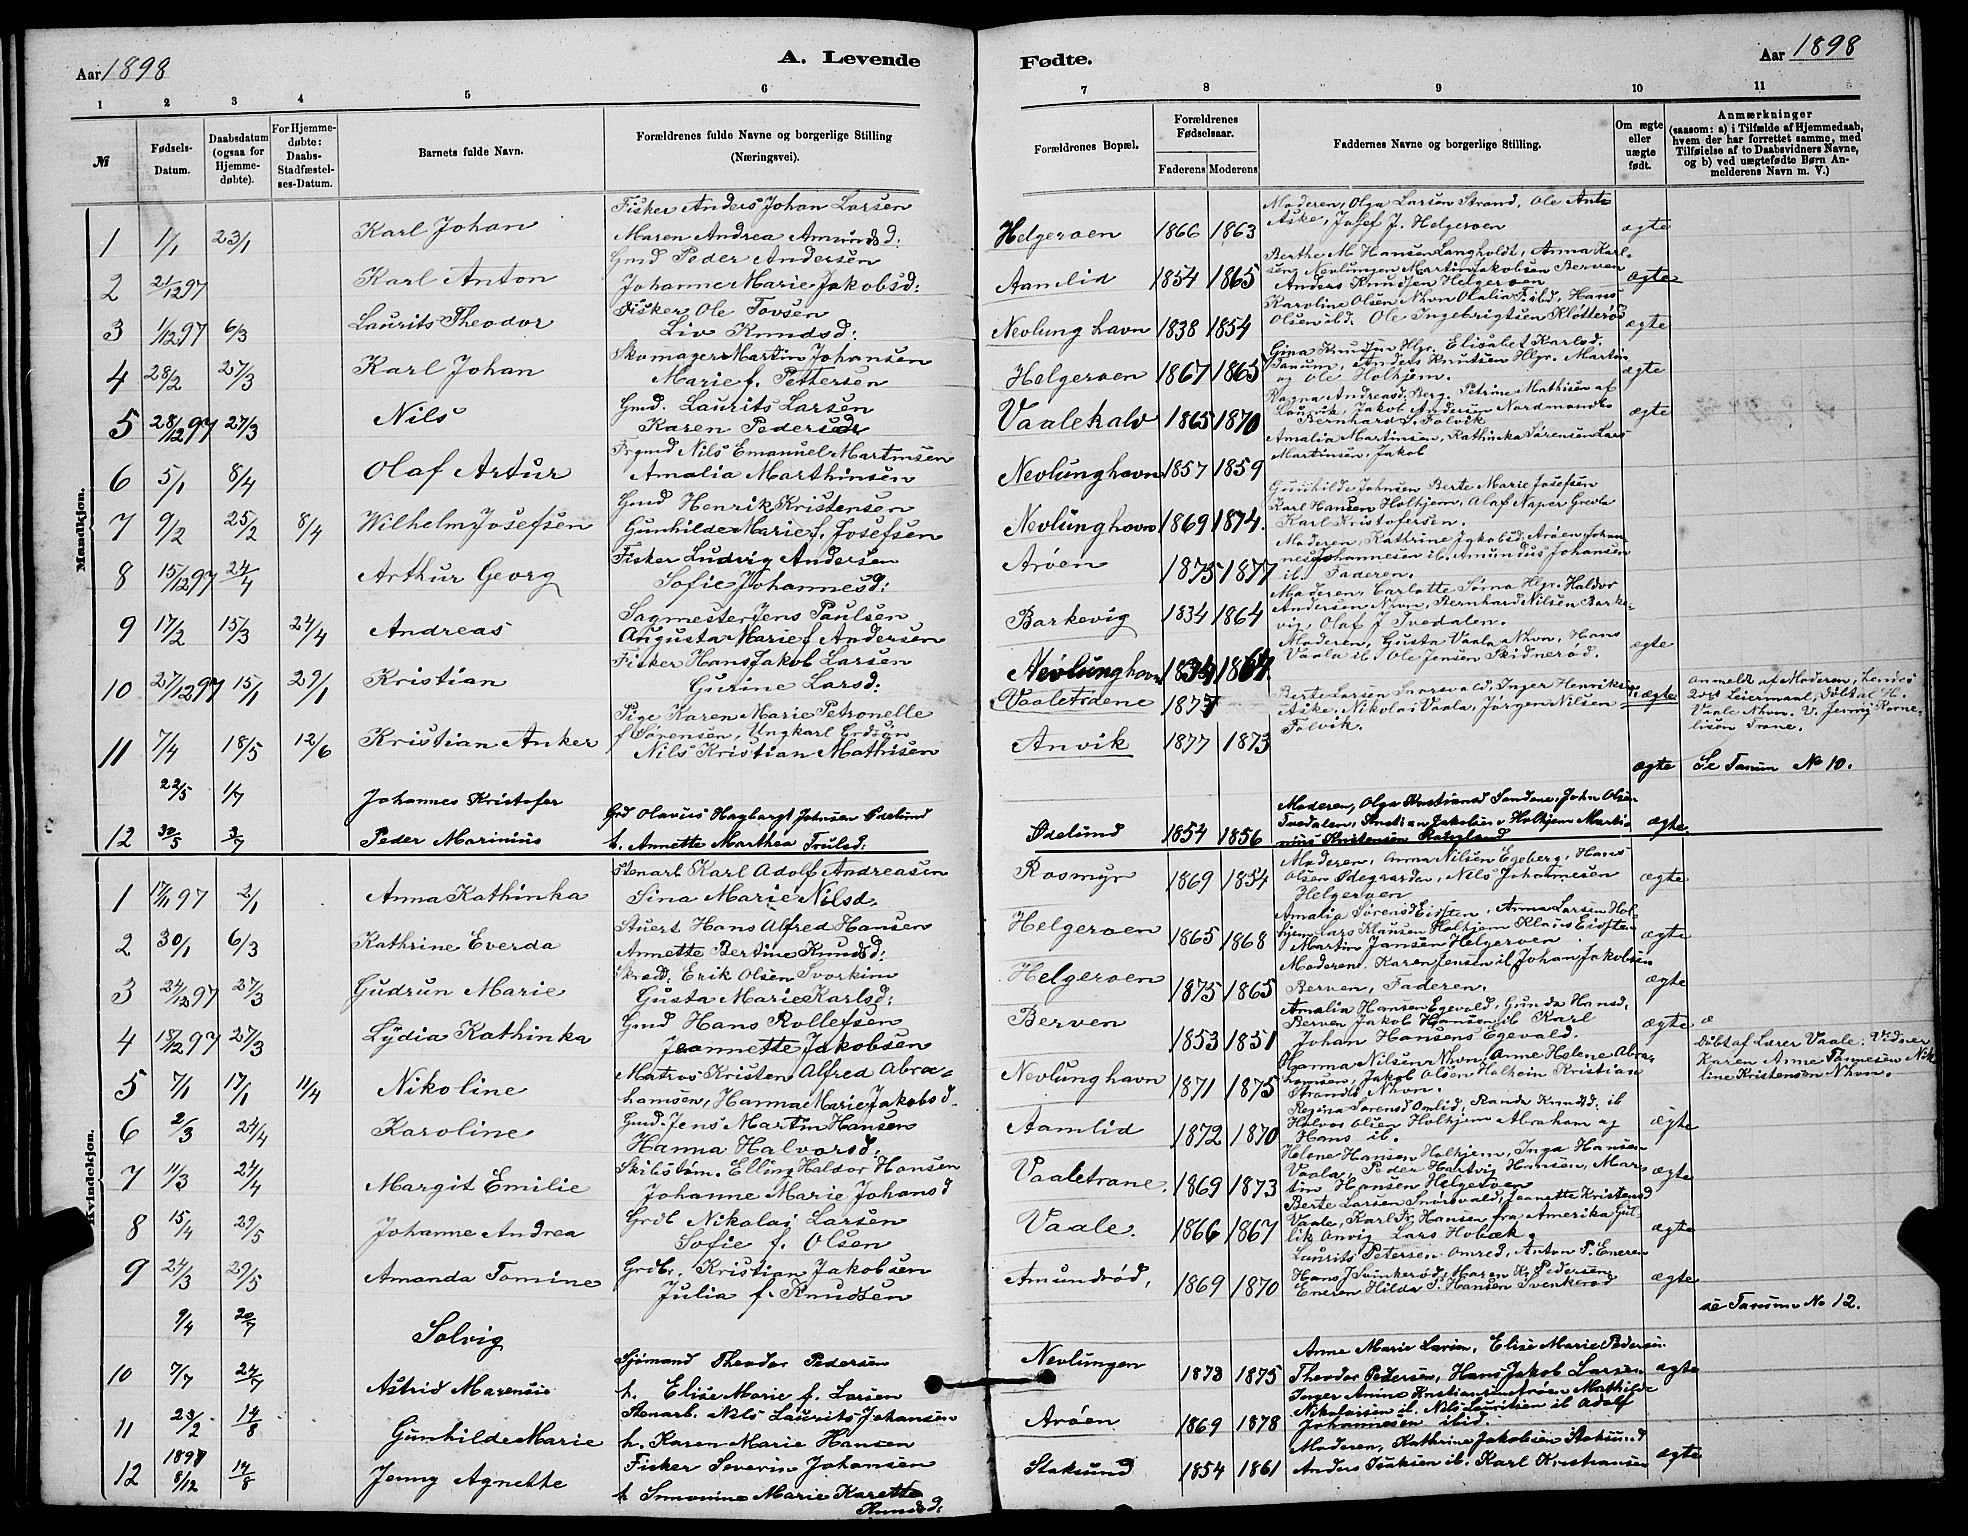 Aar 1898
A. Levende
1 2 3 4 5 6
№
Fødsels-
Datum.
Daabsdatum
(ogsaa for
Hjemme-
døbte).
For Hjemme-
døbte:
Daabs-
Stadfæstel-
ses-Datum.
Barnets fulde Navn.
Forældrenes fulde Navne og borgerlige Stilling
(Næringsvei).
Mandkjøn.
1 1/1 23/1 Karl Johan
Fisker Anders Johan Larsen
Maren Andrea Amundsd:
2 21/12 97 Karl Anton
Gmd Peder Andersen
Johanne Marie Jakobsd:
3 1/12 97 6/3 Laurits Theodor
Fisker Ole Tovsen
Liv Knudsd:
4 28/2 27/3 Karl Johan
Skomager Martin Johansen
Marie f. Pettersen
5 28/12 97 27/3 Nils
Gmd. Laurits Larsen
Karen Pedersdr
6 5/1 8/4 Olaf Artur
Frgmd Nils Emanuel Martinsen
Amalia Marthinsen
7 9/2 25/2 8/4 Wilhelm Josefsen
Gmd Henrik Kristensen
Gunhilde Marie f. Josefsen
8 15/12 97 24/4 Arthur Georg
Fisker Ludvig Andersen
Sofie Johannesd:
9 17/2 15/3 24/4 Andreas
Sagmester Jens Paulsen
Augusta Marie f Andersen
10 27/12 97 15/1 29/1 Kristian
Fisker Hans Jakob Larsen
Gurine Larsd:
11 7/4 18/5 12/6 Kristian Anker
Pige Karen Marie Petronelle
f Sørensen, Ungkarl
Nils Kristian Mathisen
22/5 1/7 Johannes Kristofer
12 30/5 3/7 Peder Marinius
Grd Olavus Hagbargt Johnsen Ødelund
h. Annette Marthea Trulsd:
Kvindekjøn.
1 17/11 97 2/1 Anna Kathinka
Stenarb Karl Adolf Andreasen
Sina Marie Nilsd.
2 30/1 6/3 Kathrine Everda
Stuert Hans Alfred Hansen
Annette Bertine Knudsd:
3 24/12 97 27/3 Gudrun Marie
Skrædd: Erik Olsen Svorkim
Gusta Marie Karlsd:
4 18/12 97 27/3 Lydia Kathinka
Gmd Hans Rollefsen
Jeannette Jakobsen
5 7/1 17/1 11/4 Nikoline
Matros Kristen Alfred Abra-
hamsen, Hanna Marie Jakobsd.
6 2/3 24/4 Karoline
Gmd. Jens Martin Hansen
Hanna Halvorsd:
7 11/3 24/4 Margit Emilie
Skibstøm. Elling Haldor Hansen
Johanne Marie Johansd
8 15/4 29/5 Johanne Andrea
Grdb Nikolai Larsen
Sofie f. Olsen
9 24/3 29/5 Amanda Tomine
Grdbr. Kristian Jakobsen
Julia f. Knudsen
9/4 20/7 Solvig
10 7/7 24/7 Astrid Marensis
Sjömand Theodor Pedersen
h. Elise Marie f. Larsen
11 23/2 14/8 Gunhilde Marie
Stenarb. Nils Laurits Johansen
h. Karen Marie Hansen
12 1897 8/12 14/8 Jenny Agnette
Fisker Severin Johansen
h Simonine Marie Karette
Knudsd:
Fødte.
Aar 1898
7 8 9 10 11
Forældrenes Bopæl.
Forældrenes
Fødselsaar.
Faderens Moderens
Faddernes Navne og borgerlige Stilling.
Om ægte
eller
uægte
født.
Anmærkninger
(saasom: a) i Tilfælde af Hjemmedaab,
hvem der har forrettet samme, med
Tilføielse af to Daabsvidners Navne,
og b) ved uægtefødte Børn An-
melderens Navn m. V.)
Helgeroen 1866 1863
Moderen, Olga Larsen Strand, Ole Ants
Aske, Josef J. Helgeroen
ægte
Aamlid 1854 1865
Berthe M Hansen Langholdt, Anna Karl-
sen Nevlungen Martin Jakobsen Berven
Anders Knudsen Helgeroen
ægte
Nevlung havn 1838 1854
Karoline Olsen Nhvn Olalia ibd, Hans
Olsen ibd. Ole Ingebrigtsen Klötteröd
ægte
Helgeroen 1867 1865
Gina Knudsen Hlgr. Elisabet Karlsd.
Tanum, Anders Knutsen Hlgr. Martin
og Ole Holhjem.
ægte
Vaalekalv 1865 1870
Ragna Andreasd: Berg. Petrine Mathisen af
Laurvik, Jakob Andersen Nordmands
Bernhard L. Folvik
ægte
Nevlunghavn 1857 1859
Amalia Martinsen, Kathinka Sørensen Lars
Martinsen, Jakob
Nevlunghavn 1869 1874.
Gunhilde Johnsen Berte Marie Josefsen
Karl Hansen Holhjem, Olaf Naper Grevle
Karl Kristofersen.
Arøen 1875 1877
Moderen, Kathrine Jakobsd, Arøen Johan
nes Johannesen ib. Amundus Johansen
ib. Faderen.
Barkevig 1834 1864
Moderen, Carlotte Sina Hlgr. Haldor
Andersen Nhvn, Bernhard Nilsen Barke-
vig, Olaf J Tvedalen.
Nevlunghavn 1834 1864.
Moderen, Gusta Vaale Nhvn, Hans
Vaale ib. Ole Jensen Skidneröd.
ægte
Vaaletsdene 1877
Anvik 1877 1873
Berte Larsen Snorsvald, Inger Henriksen
Aske, Nikolai Vaala, Jørgen Nilsen
Folvik.
uægte
anmeldt af Moderen,
Leiermaal, Döbt af H.
Vaale Nhvn. V. Jenny Korne-
lisen Trane.
ægte
Se Tanum No 10.
Ødelund 1854 1856
Moderen, Olga Kristiansd Sandene, John Olsen
Tvedalen, Kristian Jakobsen Holhjem Marti-
nius Kristensen
ægte
Rosmyr 1869 1854
Moderen, Anna Nilsen Egeberg, Hans
Olsen Ødegaarden, Nils Johannesen
Helgeroen
ægte
Helgeroen 1865 1868
Amalia Sørensd Eidsten, Anna Larsen Hol-
hjem Lars Klausen Holhjem Klaus Eidsten
Martin Jansen Helgeroen
ægte
Helgeroen 1875 1865
Moderen. Karen Jensen ib Johan Jakobsen
Berven, Faderen.
ægte
Berven 1853 1851
Amalia Hansen Egevald, Gunda Hansd,
Berven Jakob Hansen ib Karl
Johan Hansens Egevald.
ægte
Nevlunghavn 1871 1875
Hanna Nilsen Nhvn, Anne Helene Abra-
hamsen, Jakob Olsen Holhjem Kristian
Strands Nhvn.
Döbt af Lærer Vaale. Vidner
Karen Anne Tønnesen Nik
line Kristensen Nhvn.
Aamlid 1872 1870
Regina Sørensd Omlid, Randa Knudsd: ib
Halvor Olsen Holhjem Abraham og
Hans ib.
ægte
Vaaletrane. 1869 1873
Helene Hansen Holhjem, Inga Hansen
Vaala, Peder Hartvig Hansen, Mar-
tin Hansen Helgeroen
ægte
Vaale. 1866 1867
Berte Larsen Snorsvald, Jeanette Kristensd
Vaale, Karl Fr. Hansen fra Amerika Gul-
lik Anvig Lars Hobæk.
ægte
Amundrød, 1869 1870
Laurits Petersen Omred, Anton P. Eneren
Hans J Svinkeröd, Maren K. Pedersen
Eneren Hilda S. Hansen Svenkeröd
ægte
se Tanum No 12.
Nevlungen 1873 1875
Anne Marie Larsen, Elise Marie Pedersen
Theodor Pedersen, Hans Jakob Larsen
ægte
Arøen 1869 1878
Inger Anine Kristiansen Arøen Mathilde
Nikolaisen ib. Nils Lauritsen ib Adolf
Johannesen ibid.
Staksund 1854 1861
Moderen, Kathrine Jakobsen Staksund
Anders Isaksen ib. Karl Kristiansen
ægte